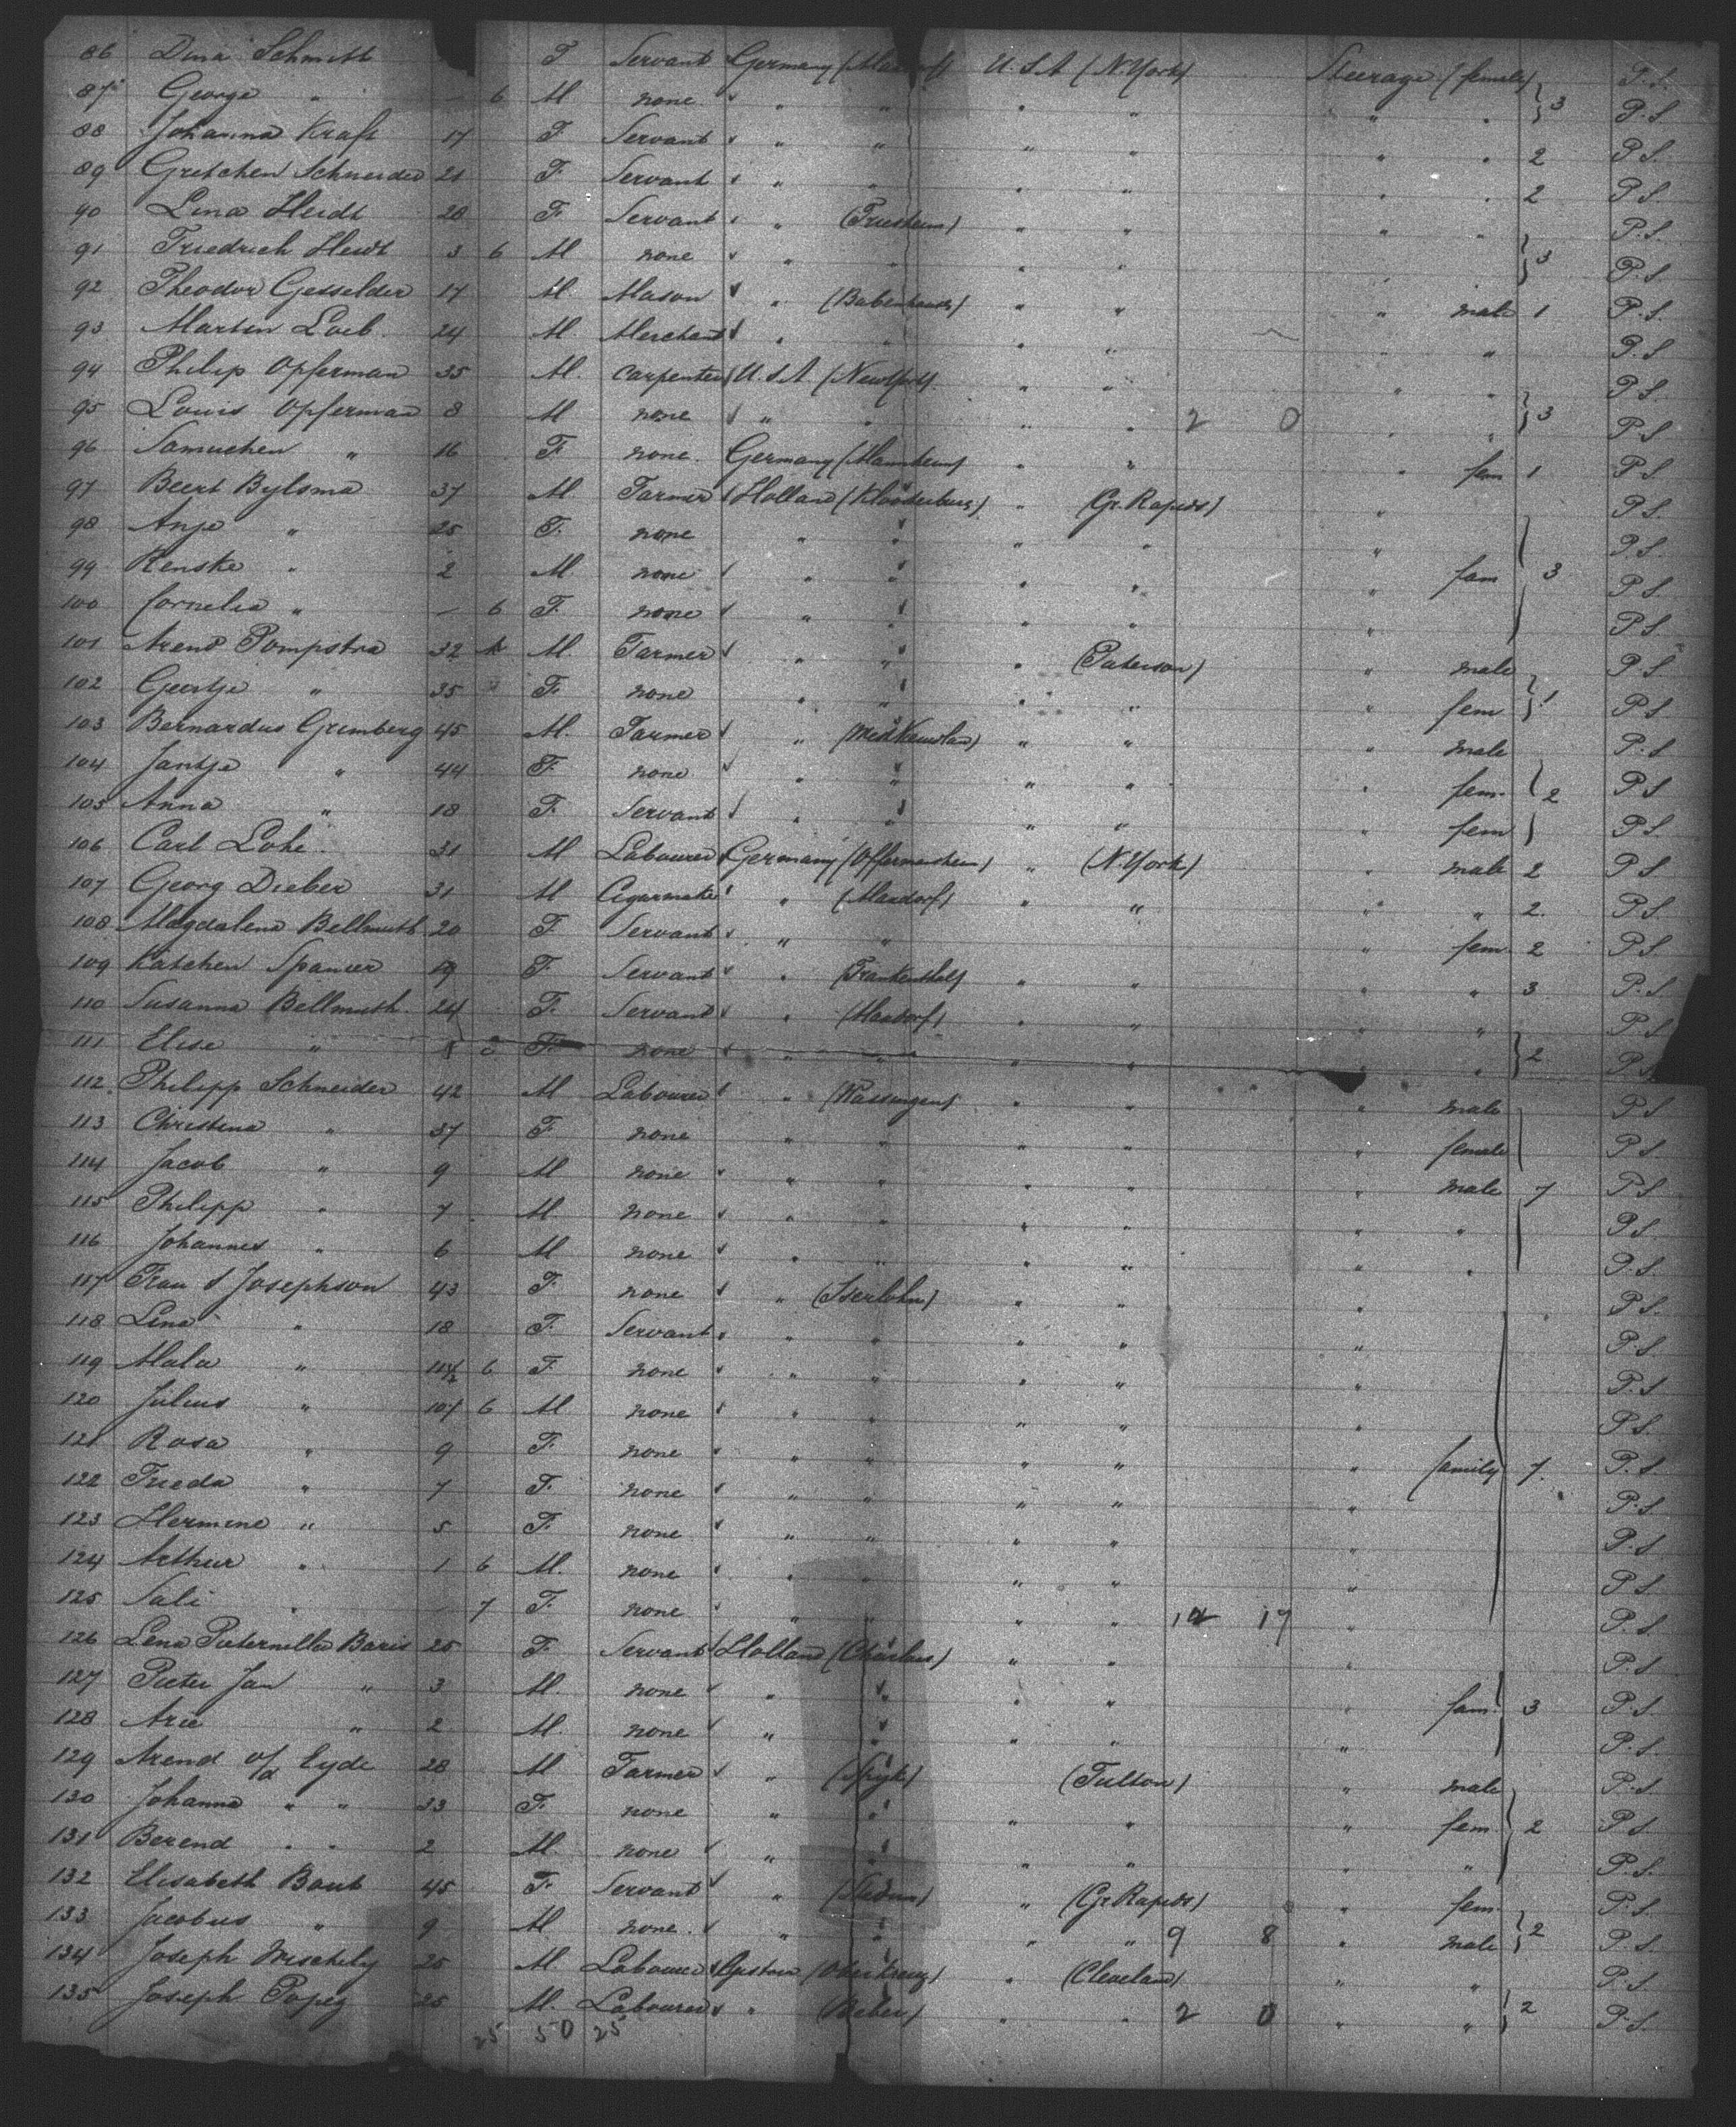 86 Dina Schmitt F Servant Germany U.S.A (N.York) Steerage (female) P.S.
87 George " — 6 M. none " " " " " " } 3 P.S.
88 Johanna Kraft 17 F. Servant " " " " " " 2 P.S.
89 Gretchen Schneider 21 F. Servant " " " " " " 2 P.S.
90 Lena Heidt 28 F Servant " " " " " P.S.
91 Friedrich Heidt 3 6 M none " " " " } 3 P.S.
92 Theodor Gesselder 17 M. Mason " (Babenhausen) " " " male 1 P.S.
93 Martin Loeb. 24 M. Merchant " " " " " P.S.
94 Philip Opferman 35 M. Carpenter U.S.A. (New York) " " " " P.S.
95 Louis Opferman 8 M none " " " " 2 0 " " } 3 P.S.
96 " 16 F. none. Germany (Manheim) " " " fem 1 P.S.
97 Beert Bylsma 37 M. Farmer Holland " (Gr. Rapids) " P.S.
98 Anje " 25 F. none " " " " " P.S.
99 Renske " 2 M. none " " " " fam } 3 P.S.
100 Cornelia " — 6 F. none " " " " " P.S.
101 Arend Pompstra 32 M. Farmer " " " (Paterson) " male P.S.
102 Geertje " 35 F. none " " " " " fem } 1 P.S.
103 Bernardus Grimberg 45 M. Farmer " " " " male P.S.
104 Jantje " 44 F. none " " " " " fem. P.S.
105 Anna " 18 F. Servant " " " " " fem } 2 P.S.
106 Carl Lohe. 31 M Labourer Germany " (N. York) " male 2 P.S.
107 Georg Dieber 31 M Cigarmaker " (Maxdorf) " " " " 2. P.S.
108 Magdalena Bellmuth 20 F. Servant " " " fem 2 P.S.
109 Katchen Spanier 19 F. Servant " (Frankenthal) " " " " 3 P.S.
110 Susanna Bellmuth. 24 F. Servant " (Maxdorf) " " " " P.S.
111 Elise " F. none " " " " " } 2 P.S.
112 Philipp Schneider 42 M Labourer " " " " male P.S.
113 Christina " 37 F. none " " " " " female P.S.
114 Jacob " 9 M none " " " " " male 7 P.S.
115 Philipp " 7 M none " " " " " " P.S.
116 Johannes " 6 M none " " " " " " P.S.
117 Frau S Josephson 43 F. none " (Iserlohn) " " " " P.S.
118 Lina " 18 F. Servant " " " " " P.S.
119 Mala " 11½ 6 F. none " " " " " P.S.
120 Julius " 6 M. none " " " " " P.S.
121 Rosa " 9 F. none " " " " " family 7. P.S.
122 Frieda " 7 F. none " " " " " P.S.
123 Hermine " 5 F. none " " " " " P.S.
124 Arthur " 1 6 M. none " " " " " P.S.
125 Sali " — 7 F. none " " " " 17 " P.S.
126 Lena Pieternella Baris 25 F. Servant Holland " " " P.S.
127 Pieter Jan " 3 M. none " " " " " fam. 3 P.S.
128 Arie " 2 M. none " " " " " P.S.
129 Arend v/d Eyde 28 M Farmer " " (Fulton) " male P.S.
130 Johanna " " 33 F. none " " " " " fem. } 2 P.S.
131 Berend " " 2 M. none " " " " " " P.S.
132 Elisabeth Bout 45 F. Servant " " (Gr. Rapids) " fem. P.S.
133 Jacobus " 9 M. none. " " " " 9 8 " male } 2 P.S.
134 Joseph 25 M Labourer " (Cleveland) " " P.S.
135 Joseph 25 M. Labourer " " " 2 0 " " } 2 P.S.
25 50 25